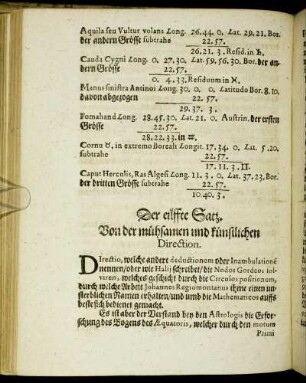 Aquila seu Vultur volans Long. 26.44. 0. Lat. 29.21. Bor.
der andern Grösse subtrahe 22.57.
26.21. 3. Resid. in ♑.
Cauda Cygni Long. 0. 27.30. Lat. 59.56.30. Bor. der an-
dern Grösse 22.57.
0. 4.33. Residuum in ♓.
Manus sinistra Antinoi Long. 30. 0. 0. Latitudo Bor. 8.10.
davon abgezogen 22.57.
29.37. 3.
Fomahand Long. 28.45.30. Lat. 21. 0. Austrin. der ersten
Grösse 22.57.
28.22.33. in ♒.
Cornu ♉, in extremo Boreali Longit. 17.34. 0. Lat. 5.20.
subtrahe 22.57.
17.11. 3. ♊
Caput Herculis, Ras Algesi Long. 11. 3. 0. Lat. 37.23. Bor.
der dritten Grösse subtrahe 22.57.
10.40. 3.
Der eilffte Satz.
Von der mühsamen und künstlichen
Direction.
Directio, welche andere deductionem oder Inambulationē
nennen/oder wie Halij schreibet/die Nodos Gordeos sol-
veren, welches geschicht durch die Circulos positionum,
durch welche Arbeit Johannes Regiomontanus ihme einen un-
sterblichen Namen erhalten/und umb die Mathematicos auffs
besteßich bedienet gemacht.
Es ist aber der Verstand bey den Astrologis die Erfor-
schung des Bogens des Æquatoris, welcher durch den motum
Primi